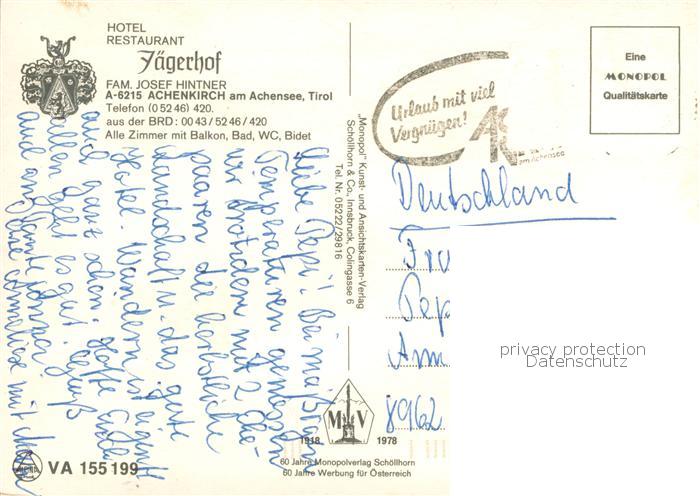 HOTEL
RESTAURANT
Jägerhof
FAM. JOSEF HINTNER
A-6215 ACHENKIRCH am Achensee, Tirol
Telefon (0 52 46) 420.
aus der BRD: 00 43 / 52 46 / 420
Alle Zimmer mit Balkon, Bad, WC, Bidet
Liebe Pepi! Bei mäßigen
Temperaturen genießen
wir trotzdem mit 2 Ehe-
paaren die herbstliche
Landschaft u. das gute
Hotel. Wandern ist eigentl.
auch ganz schön. Hoffe Euch
allen geht es gut. Gruß
auch an Tante
Anneliese mit
„Monopol" Kunst- und Ansichtskarten-Verlag
Schöllhorn & Co., Innsbruck, Colingasse 6
Tel. Nr. 05222/29816
Urlaub mit viel
Vergnügen!
am Achensee
Eine
MONOPOL
Qualitätskarte
Deutschland
Fra
Pep
Am
8962
privacy protection
Datenschutz
M V
1918 1978
60 Jahre Monopolverlag Schöllhorn
60 Jahre Werbung für Österreich
VA 155 199